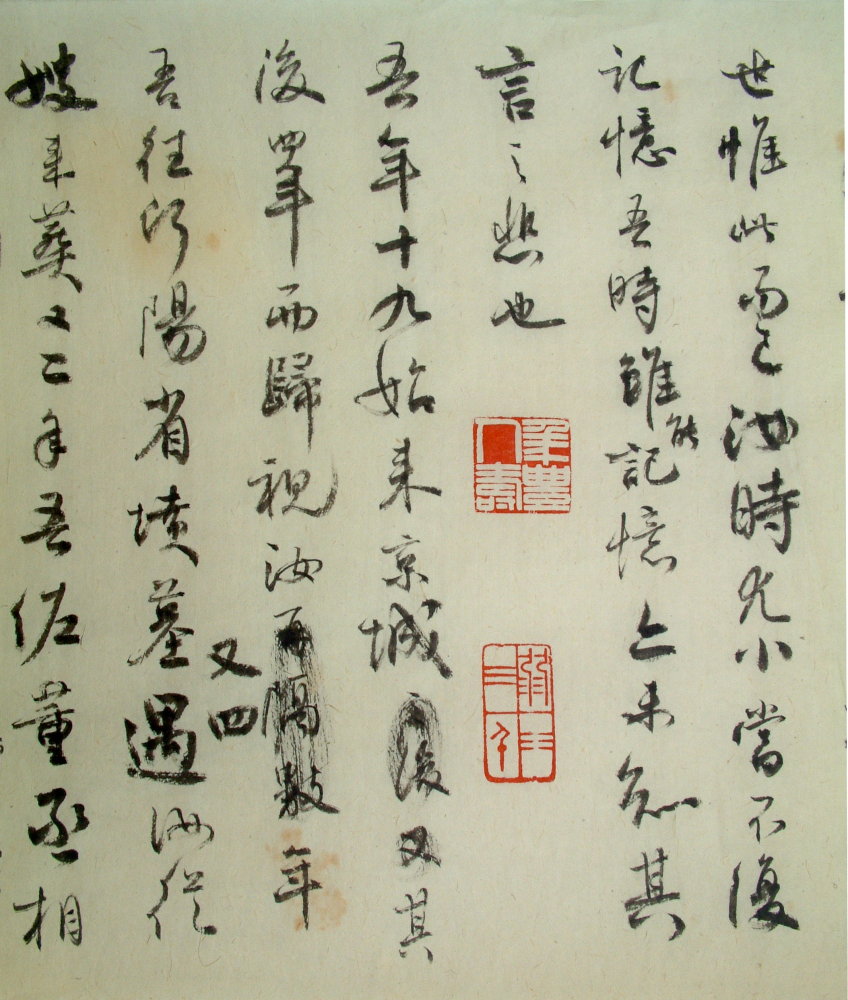 世惟此而已汝時尤小當不復
記憶吾時雖能記憶亦未知其
言之悲也
年豐人壽
吾年十九始來京城之後又其
後四年而歸視汝再隔數年
又四
吾往河陽省墳墓遇汝從
嫂來葬又二年吾佐董丞相